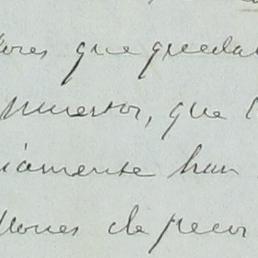 ores que queda
muertos, que l
iamente han
llones de peor